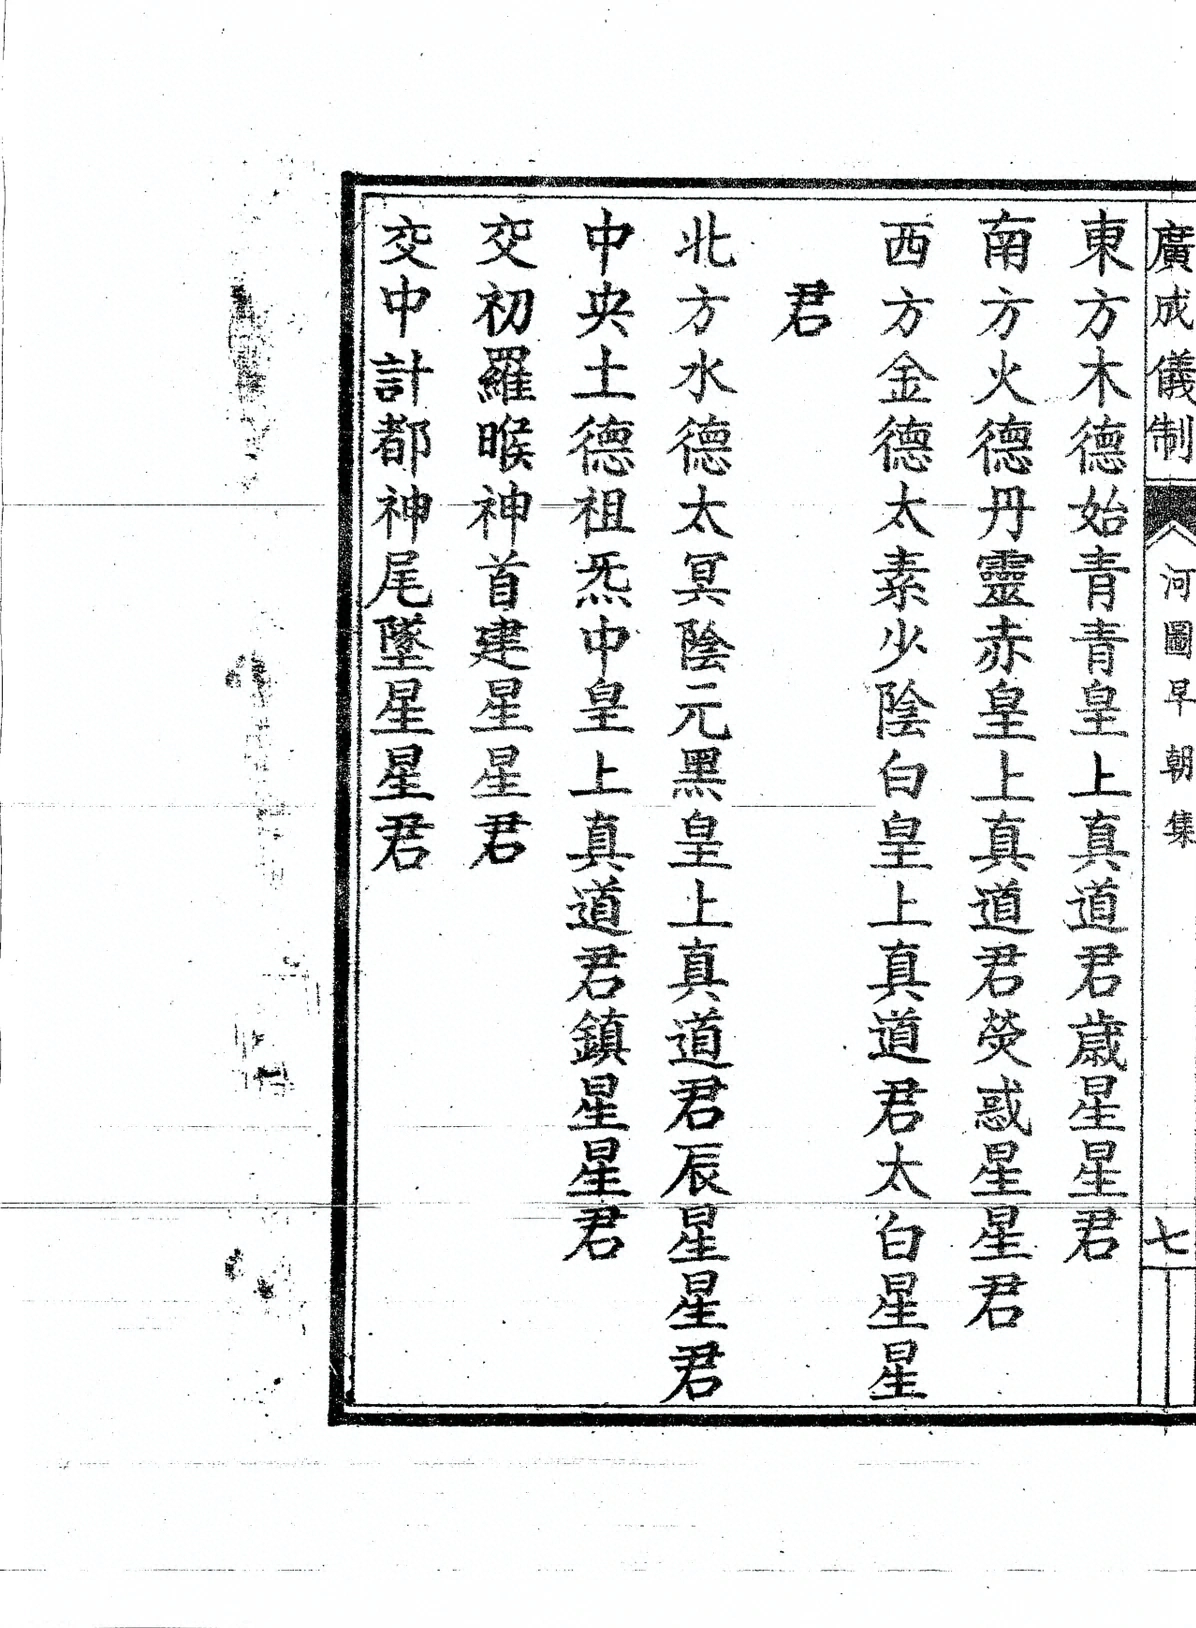 廣成儀制
河圖早朝集
七
東方木德始青青皇上真道君歲星星君
南方火德丹靈赤皇上真道君熒惑星星君
西方金德太素少陰白皇上真道君太白星星
君
北方水德太冥陰元黑皇上真道君辰星星君
中央土德祖炁中皇上真道君鎮星星君
交初羅睺神首建星星君
交中計都神尾墜星星君